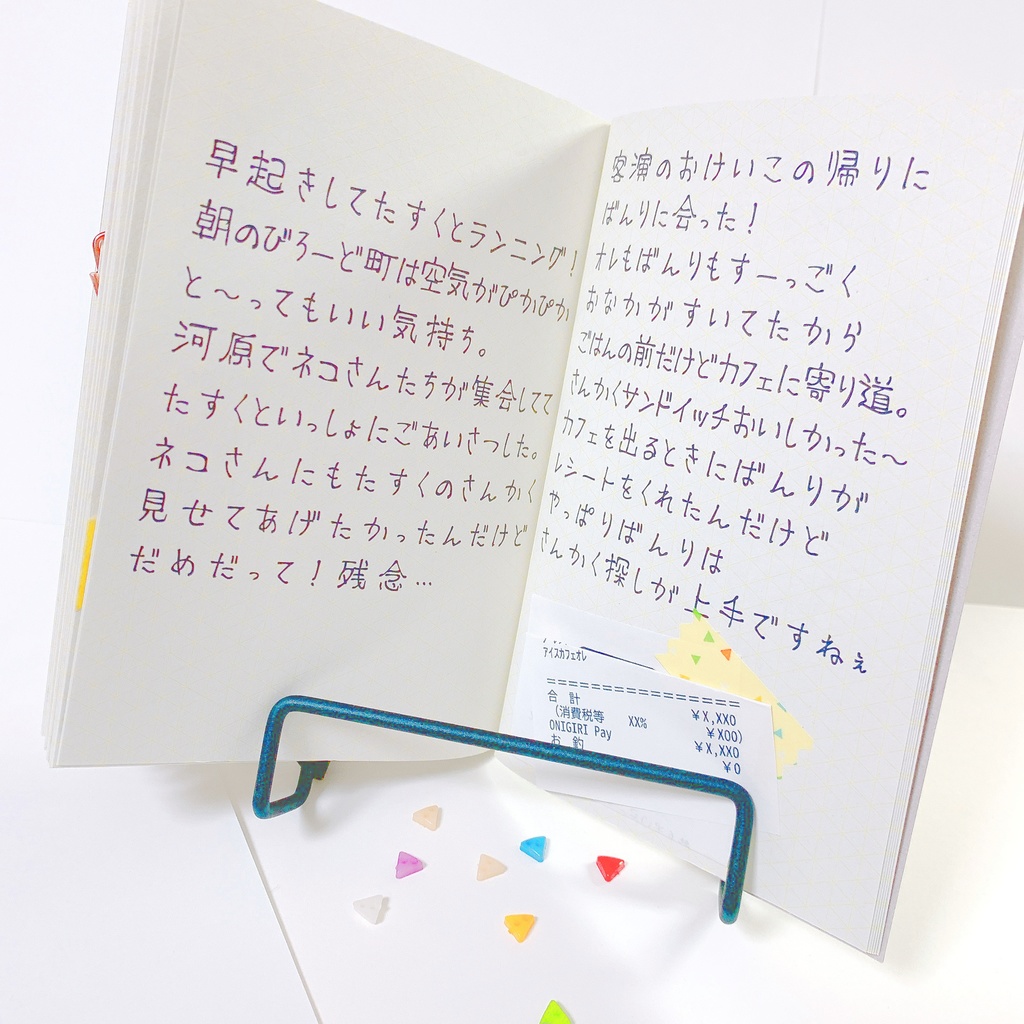 早起きしてたすくとランニング!
朝のびろーど町は空気がぴかぴか
と〜ってもいい気持ち。
河原でネコさんたちが集会してて
たすくといっしょにごあいさつした。
ネコさんにもたすくのさんかく
見せてあげたかったんだけど
だめだって!残念…
客演のおけいこの帰りに
ばんりに会った!
オレもばんりもすーっごく
おなかがすいてたから
ごはんの前だけどカフェに寄り道。
さんかくサンドイッチおいしかった〜
カフェを出るときにばんりが
レシートをくれたんだけど
やっぱりばんりは
さんかく探しが上手ですねぇ
アイスカフェオレ
================
合 計 ¥X,XX0
(消費税等 XX% ¥X00)
ONIGIRI Pay ¥X,XX0
お 釣 ¥0